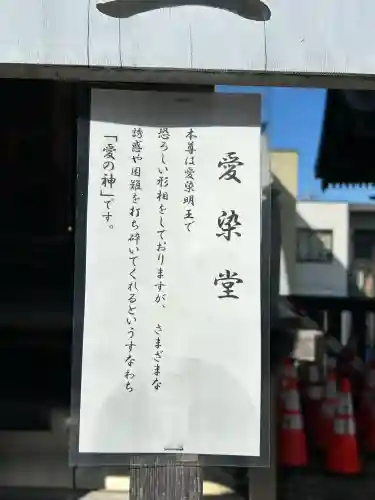 愛染堂
本尊は愛染明王で
恐ろしい形相をしておりますが、さまざまな
誘惑や困難を打ち砕いてくれるというすなわち
「愛の神」です。